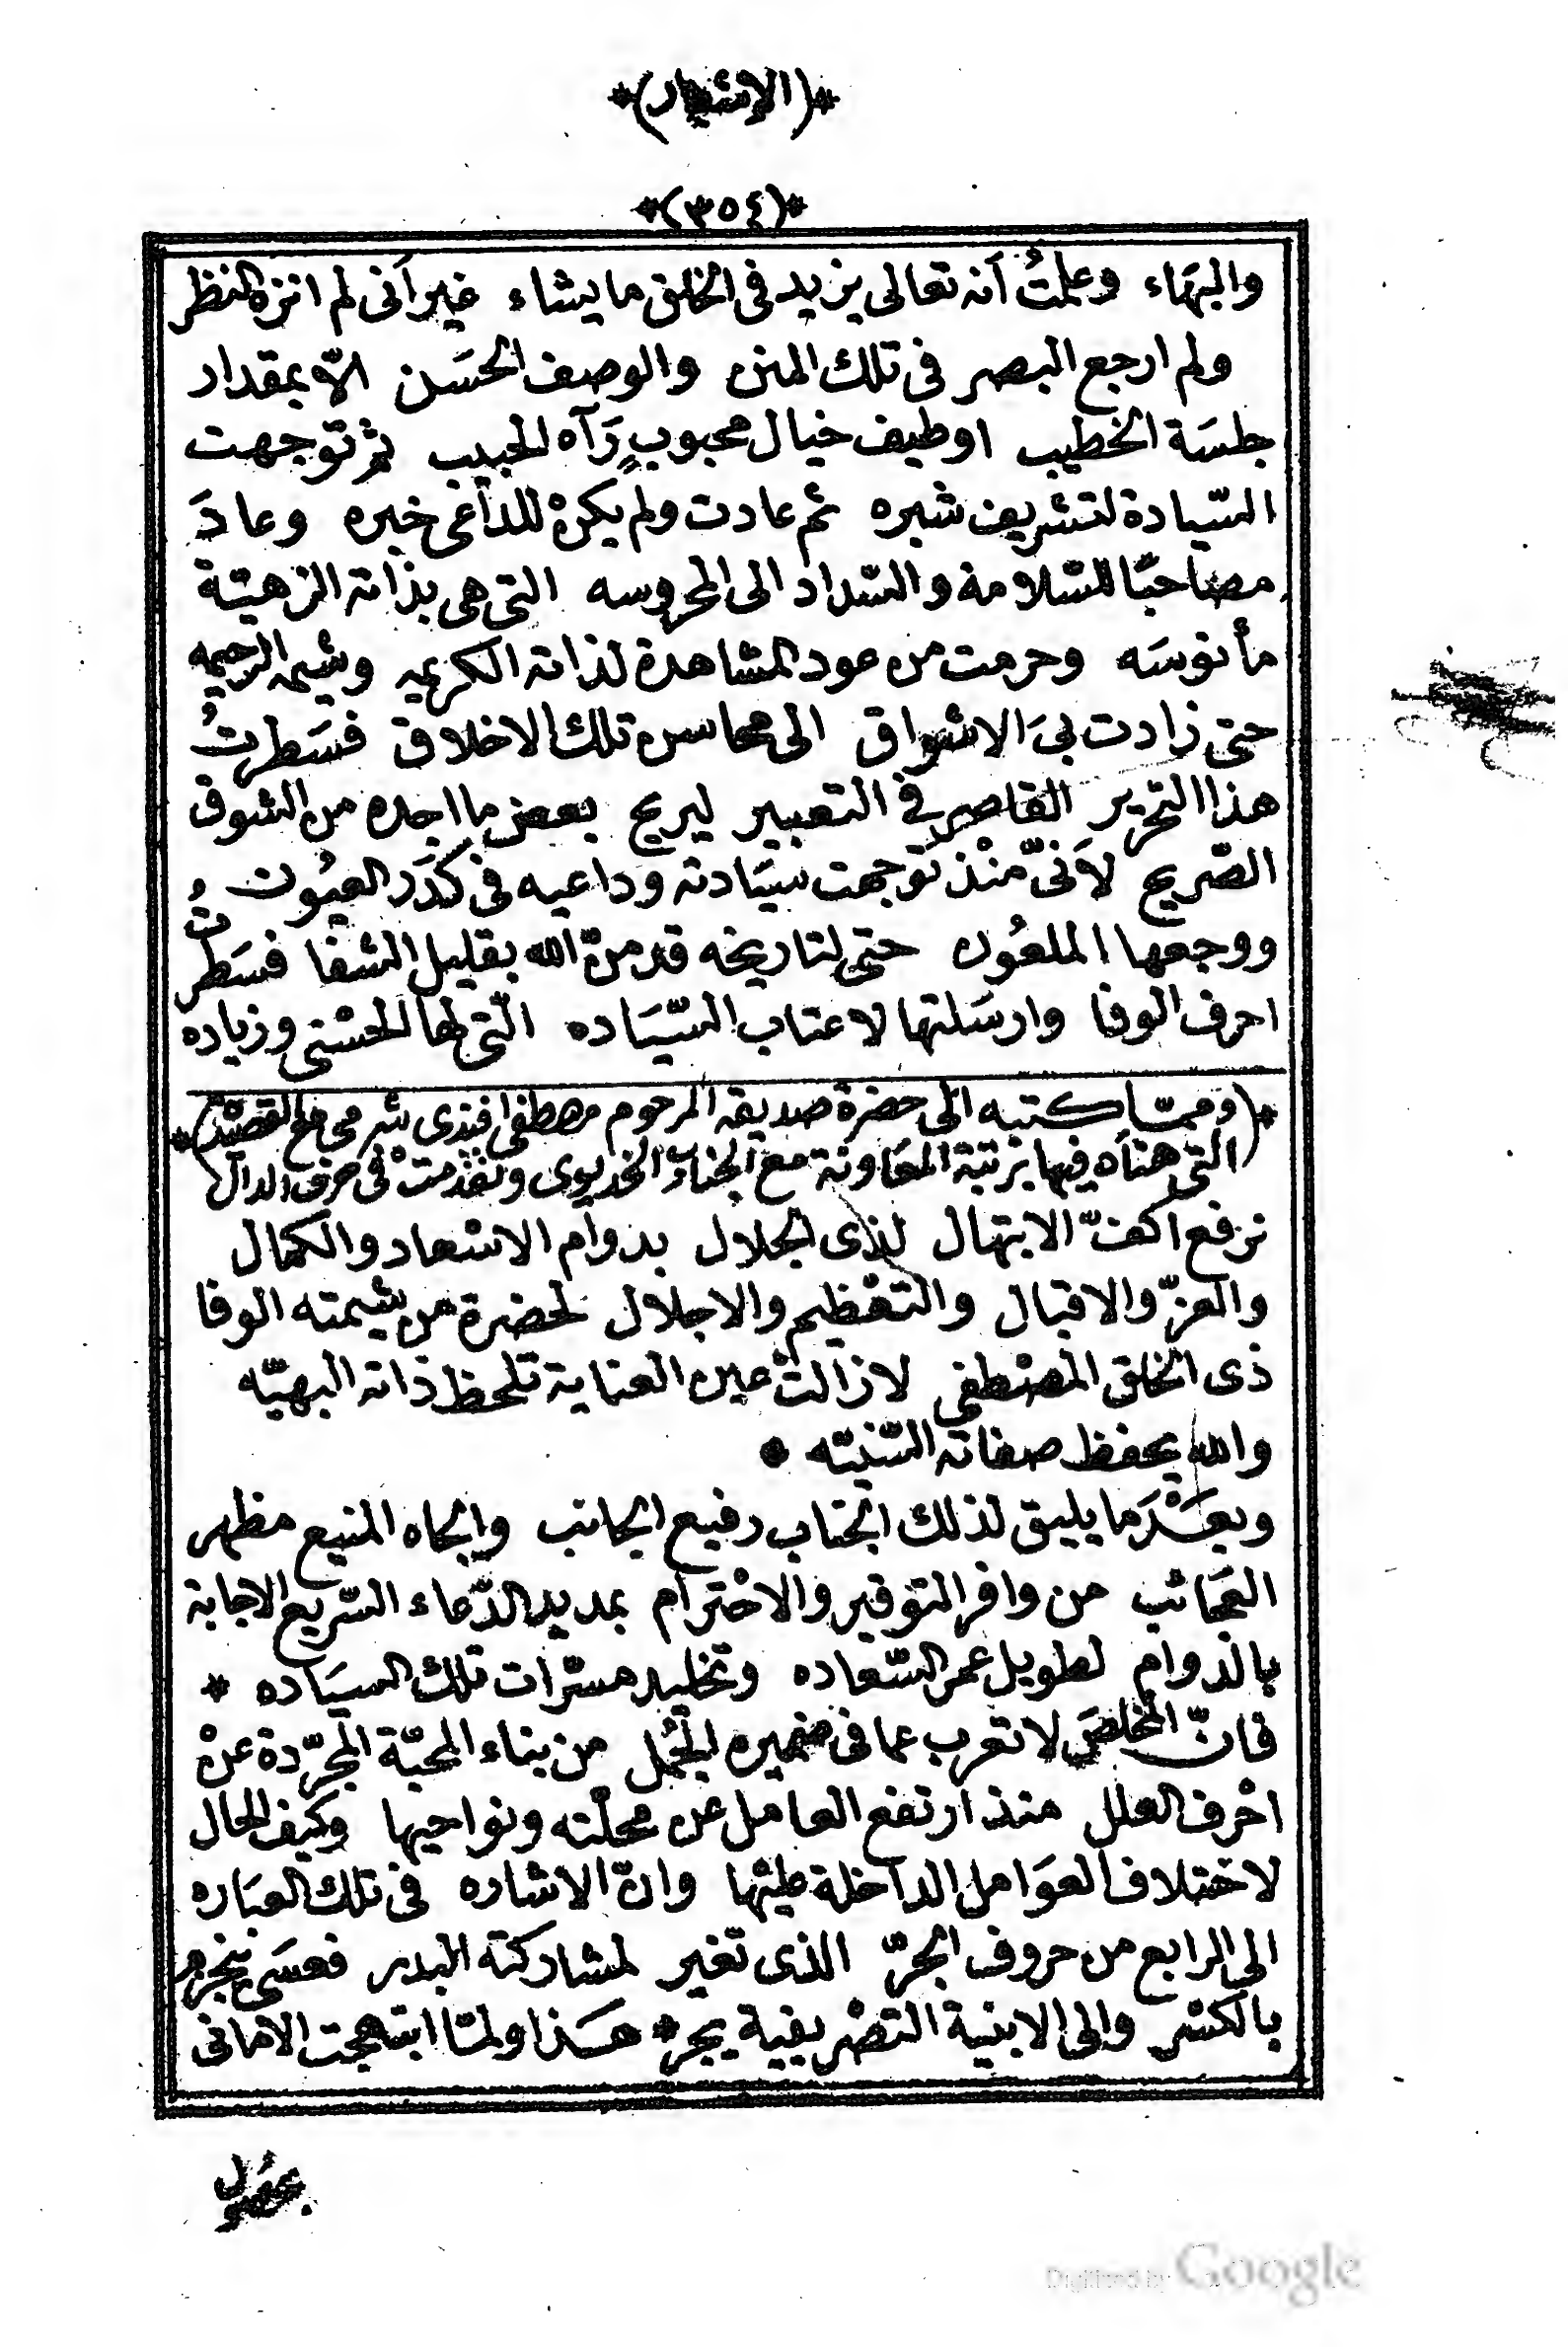 *(الإنشاء)*
*(٣٥٤)*
والبهَاء وعلمتُ أنه تعالى يزيد في الخلق ما يشاء غير أنى لم انزه النظر
ولم ارجع البصر فى تلك المنن والوصف الحسَن الّا بمقدار
جلسَة الخطيب او طيف خيال محبوبٍ رَآه الحبيب ثم توجهت
السّيادة لتشريف شبره ثم عادت ولم يكنْ للداعى خبره وعادَ
مصاحبًا للسّلامة والسّداد الى المحروسه التى هى بذاته الزهيّة
مأنوسَه وحرمت من عود المشاهدة لذاته الكريمه وشيمه الرحيمه
حتى زادت بىَ الاشواق الى محاسن تلك الاخلاق فسَطرتُ
هذا التحرير القاصر في التعبير ليريح بعض ما اجده من الشوق
الصّريح لأنىّ منْذ توجهت سيَادته وداعيه فى كدَر العيُون
ووجعها الملعُون حتى لتاريخه قد منّ الله بقليل الشفا فسَطرتُ
احرف الوفا وارسَلتها لاعتاب السّيَاده الّتى لها الحسْنى وزياده
*(وممّا كتبه الى حضرة صديقه المرحوم مصطفى افندى شرمى مع القصيدة)*
(التى هنأه فيها برتبة المعَاونة مع الجناب الخديوى وتقدمتْ فى حرف الدال)
نرفع اكفّ الابتهال لذى الجلال بدوام الاسْعاد والكمال
والعزّ والاقبال والتعْظيم والاجلال لحضرة مَن شيمته الوفا
ذى الخلق المصْطفى لازالتْ عين العناية تلحظ ذاته البهيّه
والله يحفظ صفاته السّنيّه *
وبعَدْ ما يليق لذلك الجناب رفيع الجانب والجاه المنيع مظهر
العجائب من وافر التوقير والاحْترام بمديد الدّعاء السّريع الاجابة
بالدوام لطويل عمر السّعاده وتخليد مسرّات تلك السيَاده *
فانّ المخلص لا تعرب عما فى ضميره المجُمل من بناء المحبّة المجرّدة عنْ
احْرف العلل منذ ارتفع العامل عن محلّته ونواحيها وكيف الحال
لاختلاف العوَامل الداخلة عليْها وانّ الاشاره فى تلك العبَاره
الى الرابع من حروف الجرّ الذى تغير لمشاركته البدر فعسَى ينجزم
بالكسْر والى الابنية التصْريفية يجر * هَذا ولمّا ابتهجت الامانى
بحصُول
Digitized by Google